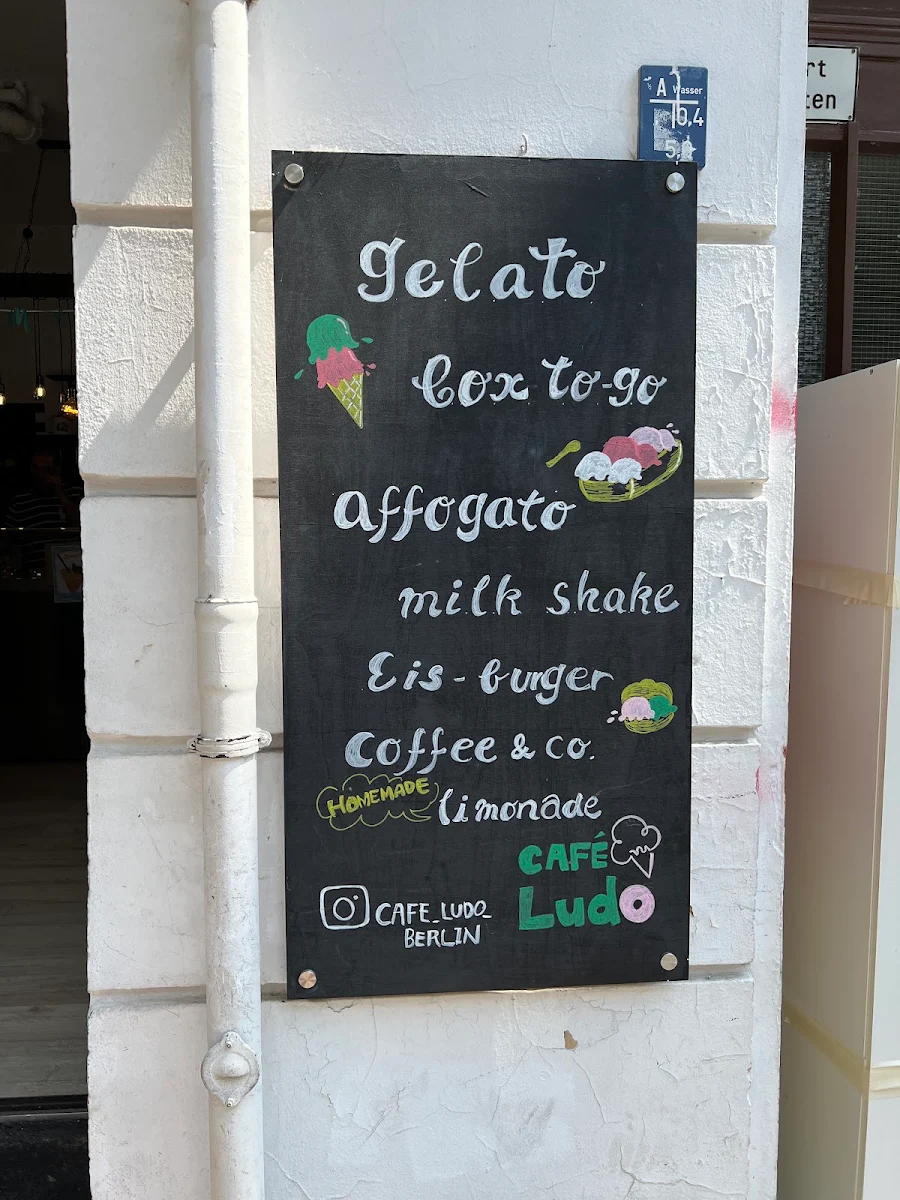 A Wasser
0,4
rt
ten
gelato
box to-go
affogato
milk shake
Eis-burger
Coffee & co.
HOMEMADE limonade
CAFÉ
Ludo
CAFE_LUDO_
BERLIN